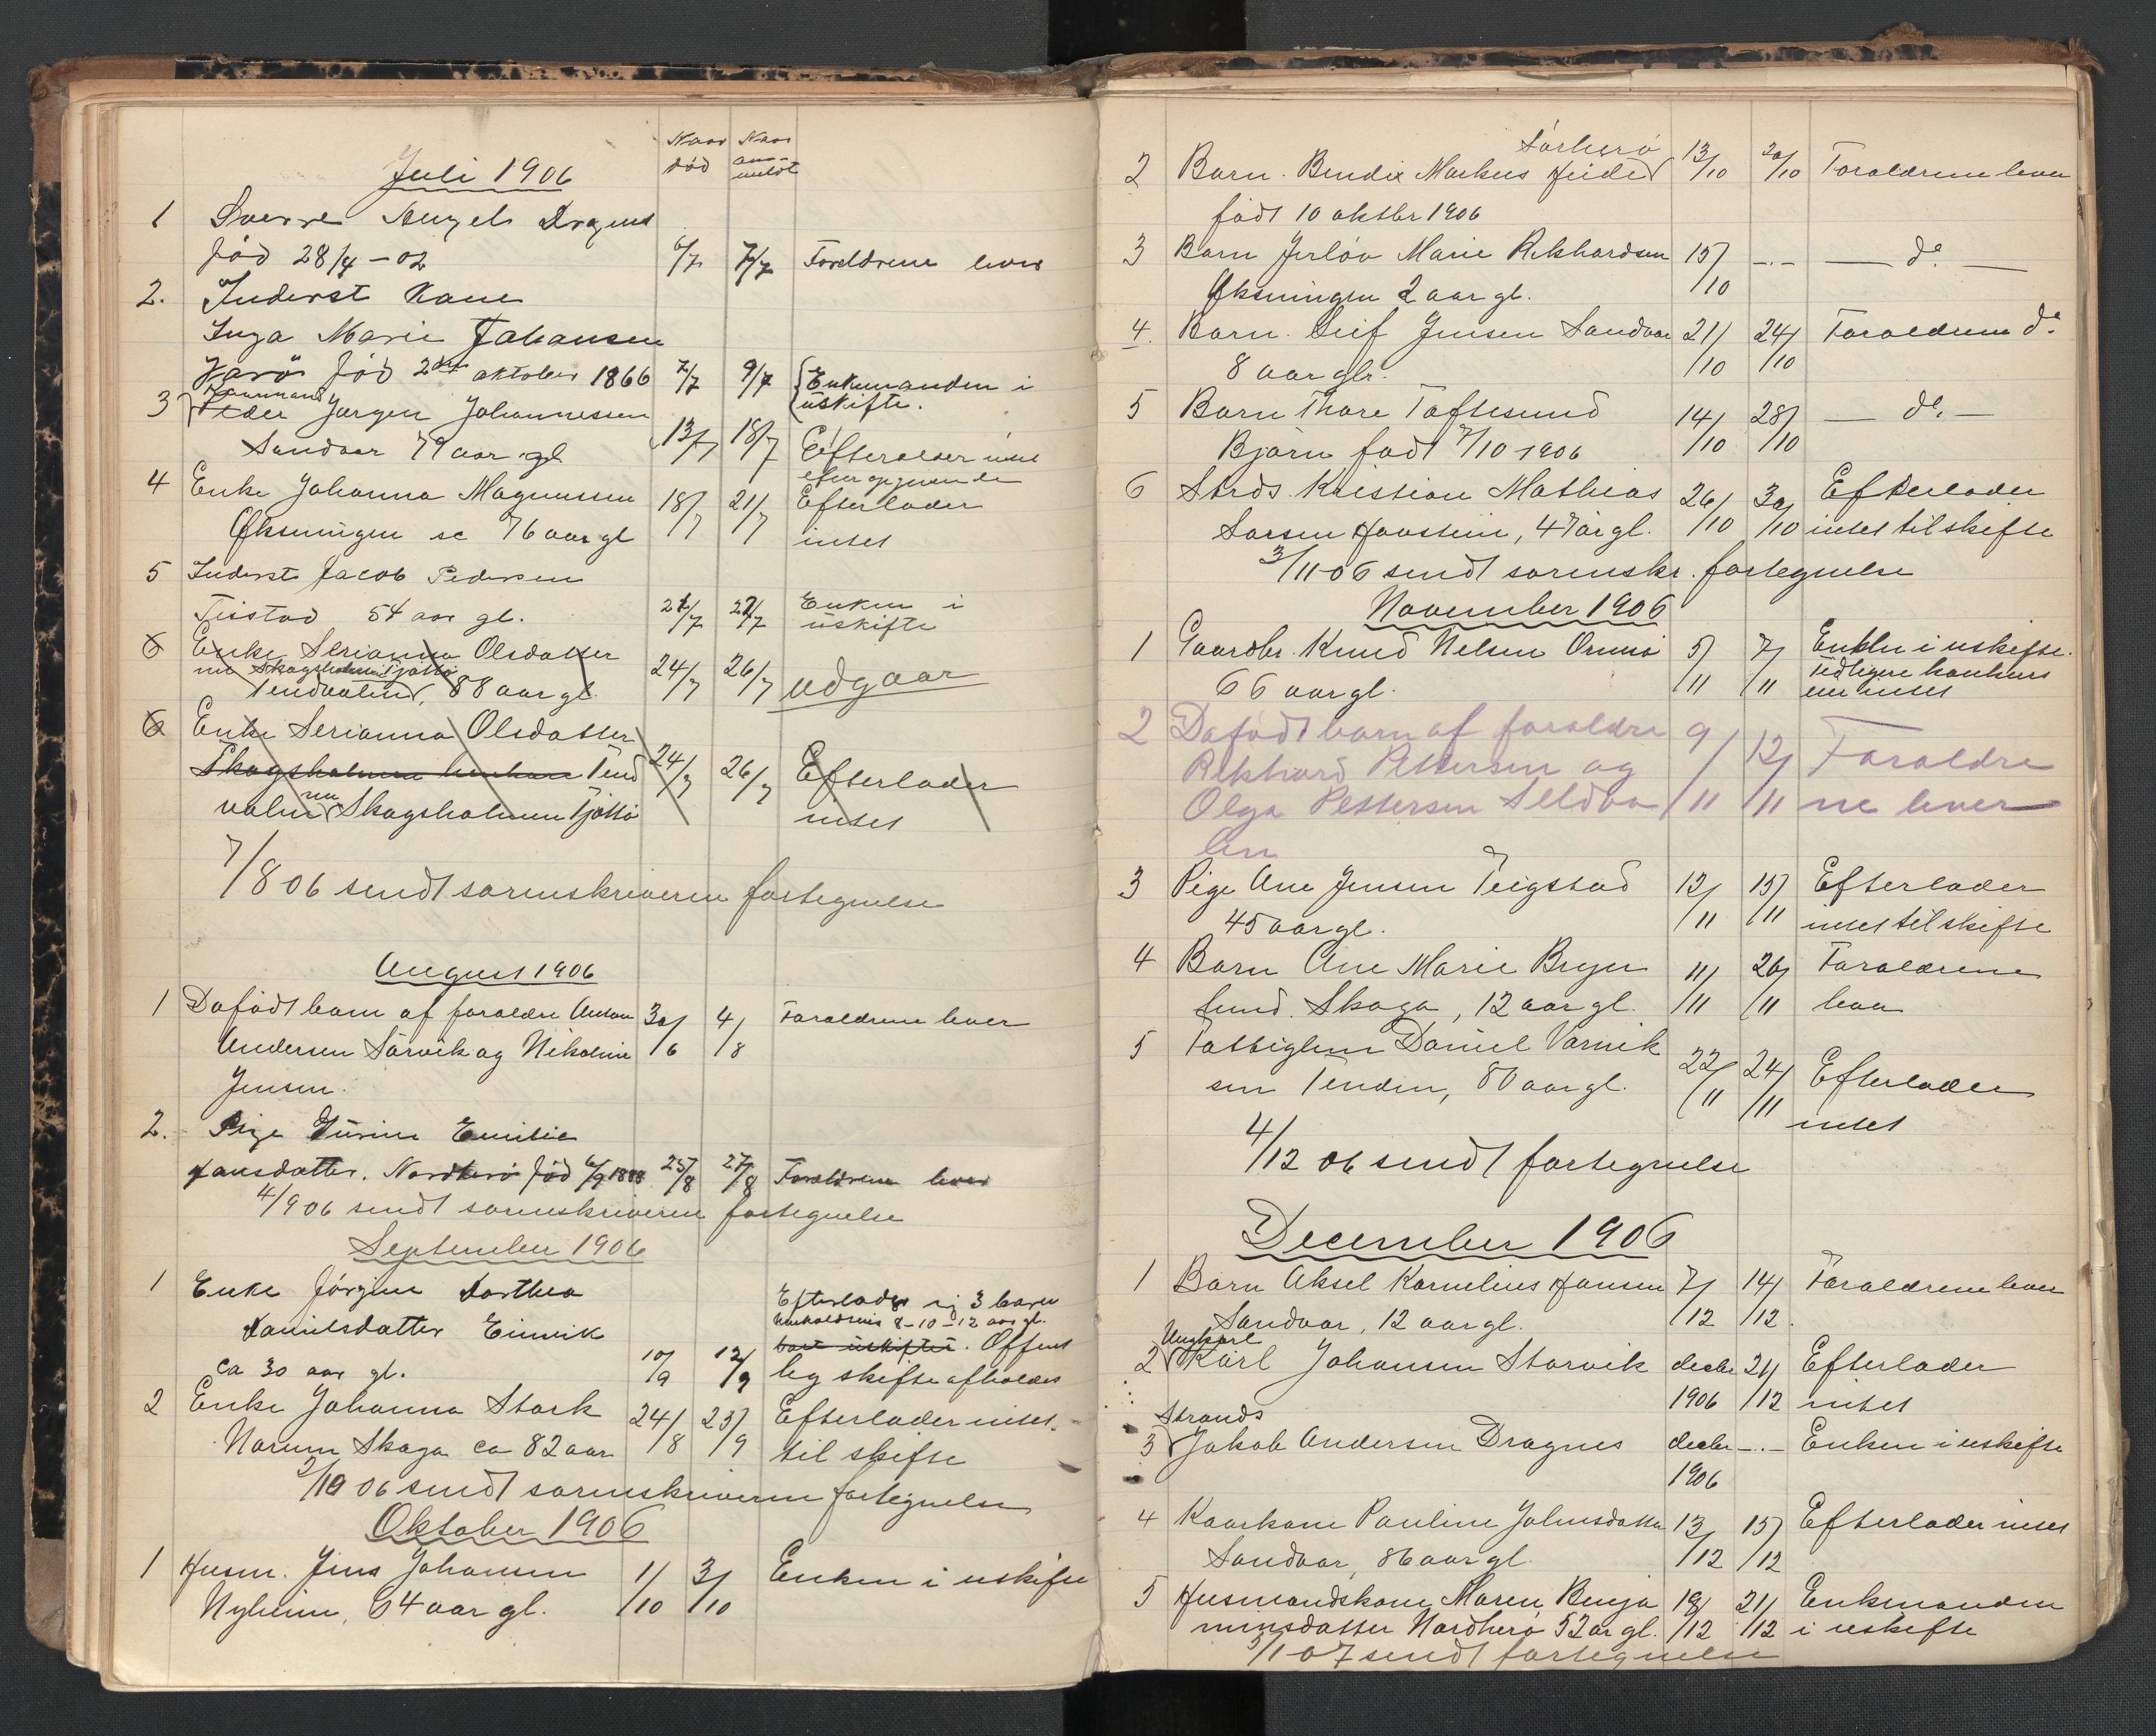 Naar Naar
død an-
meldt
Juli 1906
1 Sverre Angel Dragnes
fød 28/4 - 02 6/7 7/7 Foreldrene lever
2. Inderst Kone
Inga Marie Johansen
Havø fød 2den oktober 1866 7/7 9/7 Enkemanden i
uskifte.
3 Peder Jørgen Johannessen
Sandvær 79 aar gl 13/7 18/7 Efterlader intet
4 Enke Johanna Magnussen 18/7 21/7 Efterlader
Øksningen 76 aar gl intet
5 Inderst Jacob Pedersen
Teistad 54 aar gl. 21/7 27/7 Enken i
uskifte
6 Enke Serianna Olsdatter
nu Skogsholmen Tjøttø
Tendvalen, 88 aar gl. 24/7 26/7 udgaar
6 Enke Serianna Olsdatter
Skogsholmen Tend 24/7 26/7 Efterlader
valen nu Skogsholmen Tjøttø intet
7/8 06 sendt sorenskriveren fortegnelse
August 1906
1 Dødfødt barn af forældre Anton 30/6 4/8 Forældrene lever
Andersen Sørvik og Nikoline
Jensen.
2. Pige Jurine Emilie
Hansdatter. Nordherø fød 6/9 1888 25/8 27/8 Forældrene lever
4/9 06 sendt sorenskriveren fortegnelse
September 1906
1 Enke Jørgine Dorthea
Efterlader sig 3 barn
Danielsdatter Einvik
8-10-12 aar gl.
ca 30 aar gl. 10/9 12/9 Offent
lig skifte afholdes
2 Enke Johanna Stork 24/8 23/9 Efterlader intet
Norum Skoga ca 82 aar til skifte
2/10 06 sendt sorenskriveren fortegnelse
Oktober 1906
1 Husm. Jens Johansen 1/10 3/10 Enken i uskifte
Nyheim, 64 aar gl.
Sørherø
2 Barn. Bendix Markus Heide 13/10 20/10 Foraldrene lever
født 10 oktbr 1906
3 Barn Jerløv Marie Rikhardsen 15/10 -.- — do —
Øksningen 2 aar gl.
4. Barn. Leif Jensen Sandvær 21/10 24/10 Foraldrene do
8 aar gl.
5 Barn Thore Toftesund 14/10 28/10 — do. —
Bjørn født 7/10 1906
6 Strds. Kristian Mathias 26/10 30/10 Efterlader
Larsen Haastein, 47 år gl. intet til skifte
3/11-06 sendt sorenskr. fortegnelse
November 1906
1 Gaardbr. Knud Nelsen Ormsø 5/11 7/11 Enken i uskifte.
66 aar gl. Tidligere konkurs
eier intet
2 Døfødt barn af foraldre 9/11 12/11 Foraldre
Rikhard Pettersen og
Olga Pettersen Seldva ne lever
len
3 Pige Ane Jensen Teigstad 12/11 15/11 Efterlader
45 aar gl. intet til skifte
4 Barn Ane Marie Breger 11/11 20/11 Foraldrene
lund. Skoga, 12 aar gl. lever
5 Fattiglem Daniel Varnik 22/11 24/11 Efterlader
sen Tenden, 80 aar gl. intet
4/12 06 sendt fortegnelse
December 1906
1 Barn Aksel Kornelius Hansen 7/12 14/12. Foraldrene lever
Sandvær, 12 aar gl.
Ungkarl
2 Karl Johansen Storvik decbr 21/12 Efterlader
1906 intet
Strands
3 Jakob Andersen Dragnes decbr -.- Enken i uskifte
1906
4 Kaarkone Pauline Johnsdatter 13/12 15/12 Efterlader intet
Sandvær, 86 aar gl.
5 Husmandskone Maren Benja 19/12 21/12 Enkmanden
minsdatter Nordherø 52 år gl. i uskifte
3/1 07 sendt fortegnelse